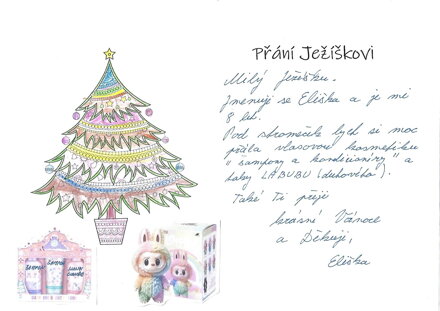 Přání Ježíškovi
Milý Ježíšku.
Jmenuji se Eliška a je mi
8 let.
Pod stromeček bych si moc
přála vlasovou kosmetiku
"šampony a kondicionéry" a
taky LABUBU (duhového).
Také Ti přeji
krásné Vánoce
a Děkuji,
Eliška